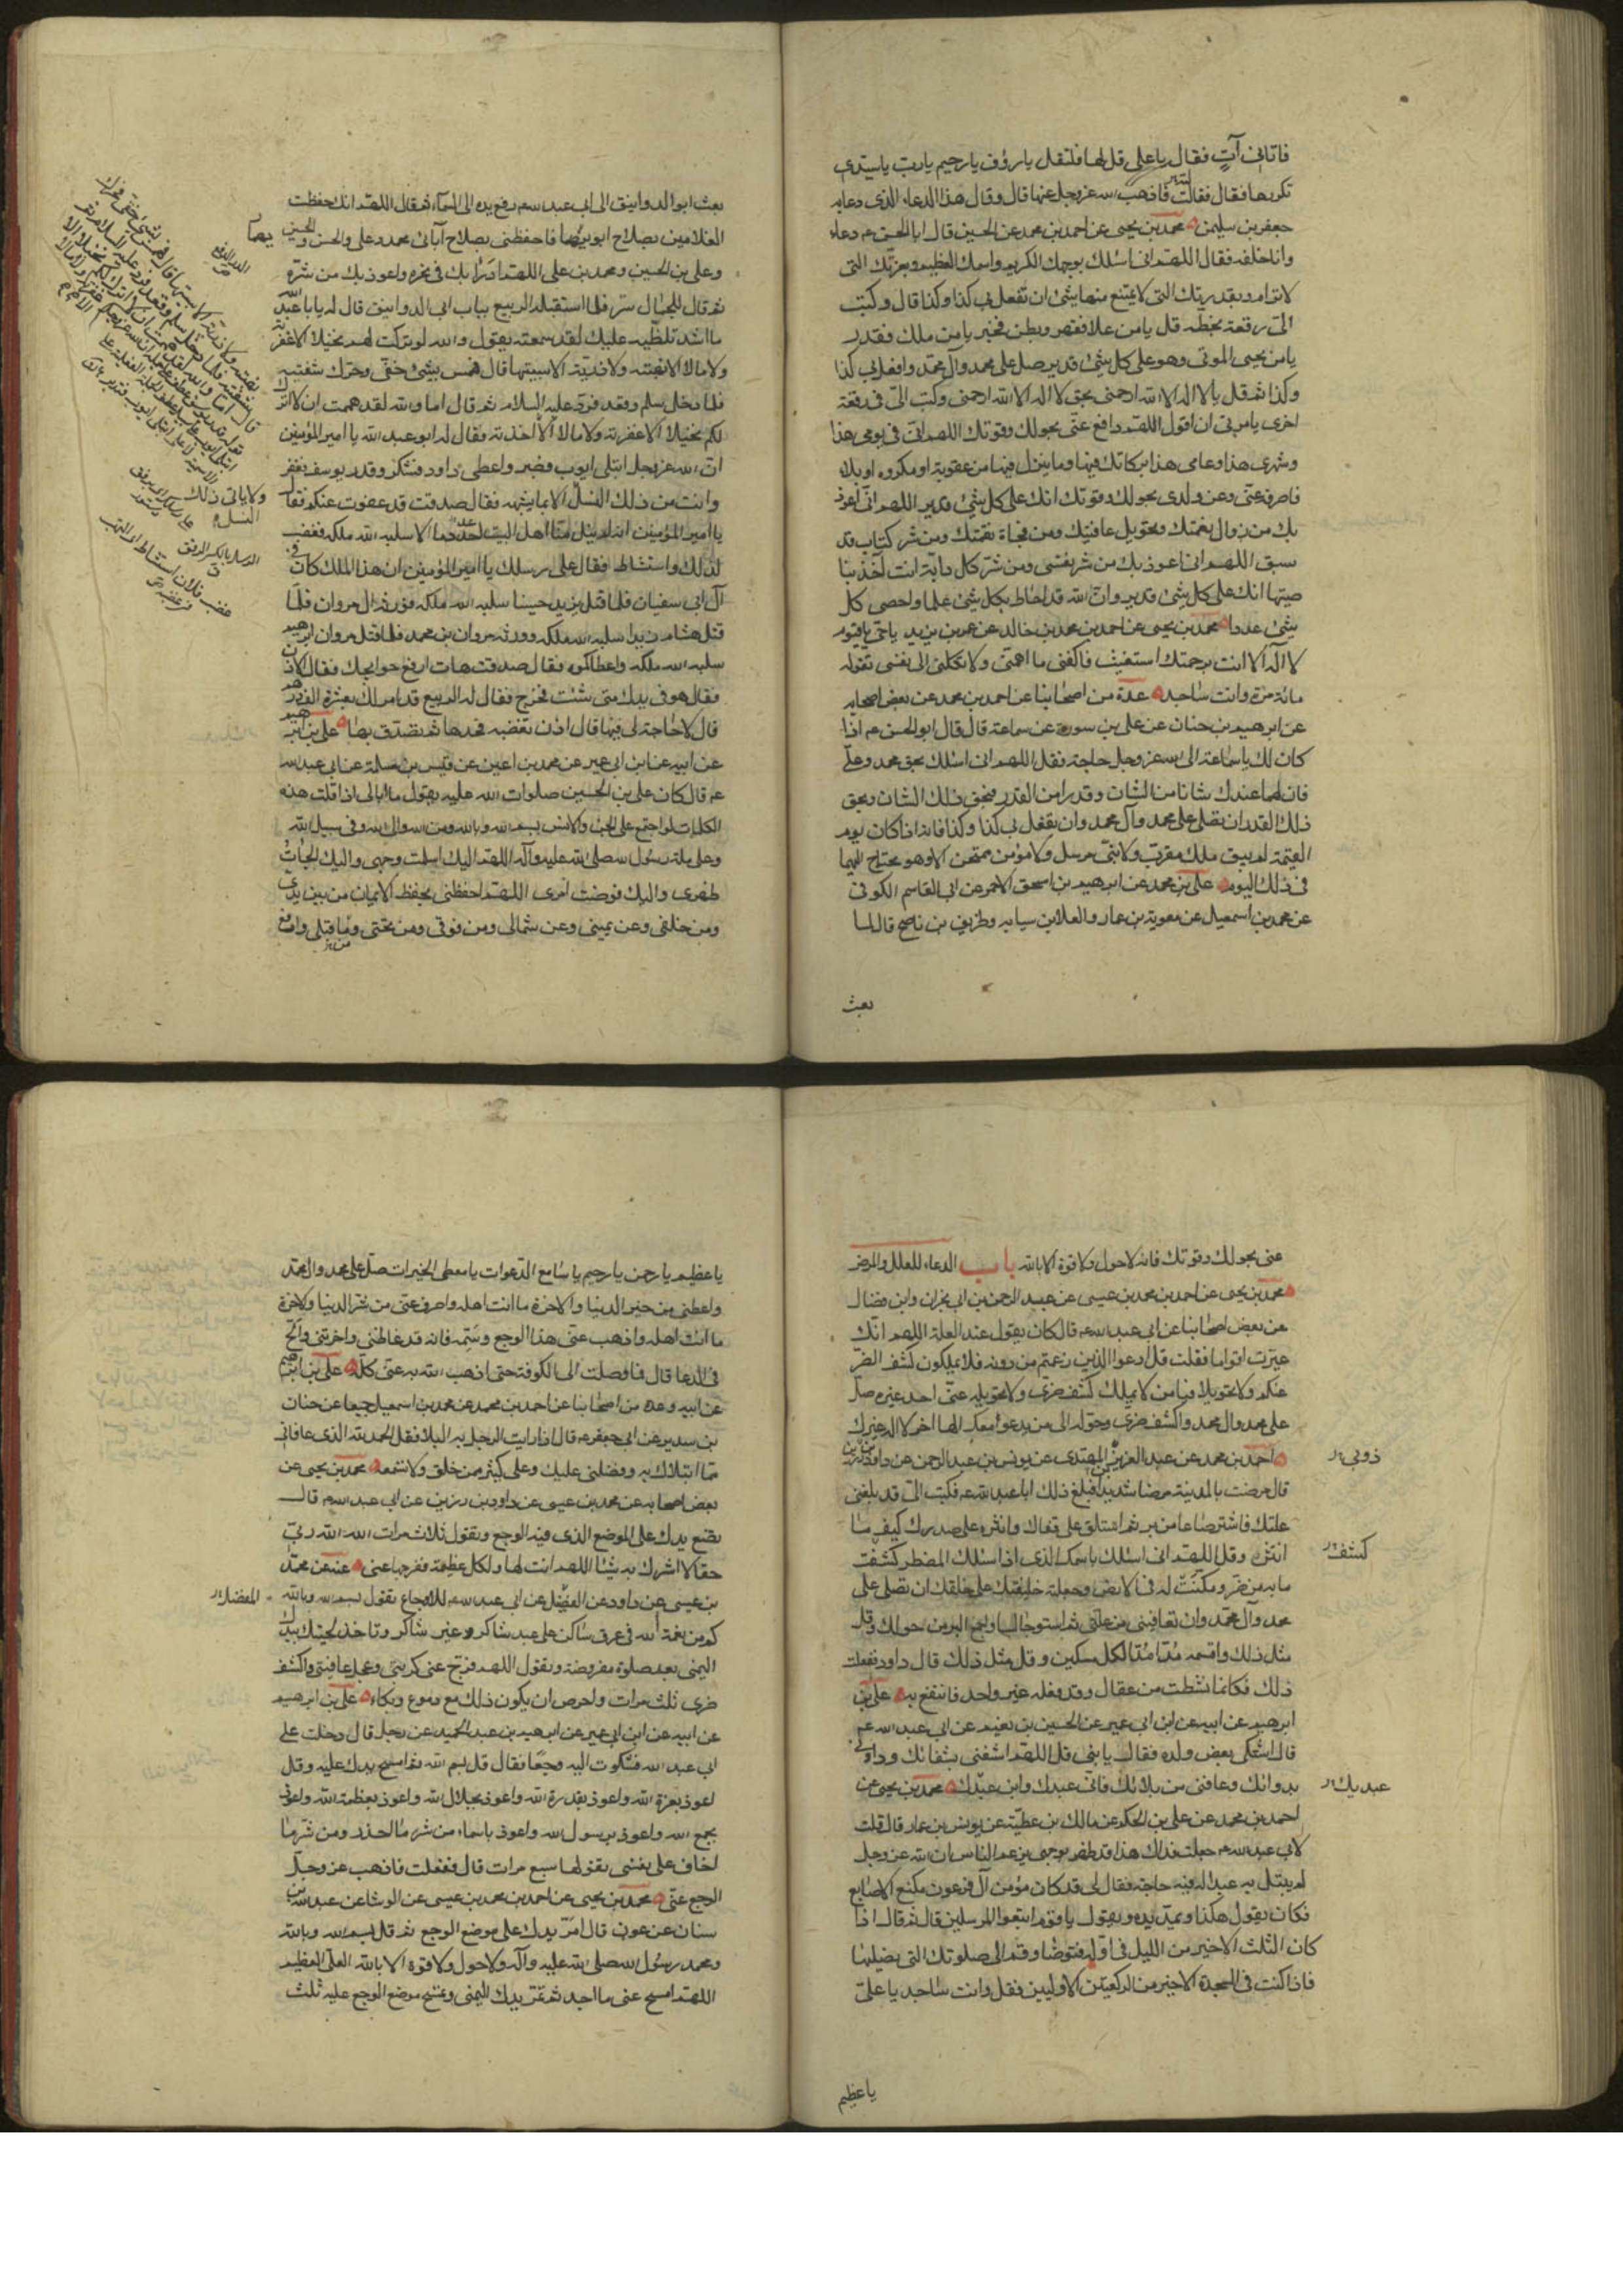 فاتاني آتٍ فقال يا علي قل لها فلتقل يا رؤف يا رحيم يا رب يا سيدي
تكررها فقال فقالت فاذهب الله عز وجل عنها قال وقال هذا الدعاء الذي دعا به
جعفر بن سليمن محمد بن يحيى عن احمد بن محمد عن الحسين قال ابا الحسن ع دعاء
وانا خلفه فقال اللهم اني اسئلك بوجهك الكريم واسمك العظيم وبعزتك التي
لا ترام وبقدرتك التي لا يمتنع منها شئ ان تفعل بي كذا وكذا قال وكتب
الي رقعة بخطه قل يا من علا فقهر وبطن فخبر يا من ملك فقدر
يا من يحيى الموتى وهو على كل شئ قدير صل على محمد وآل محمد وافعل بي كذا
وكذا ثم قل يا لا اله الا الله ارحمني بحق لا اله الا الله ارحمني وكتب الي في رقعة
اخرى يامرني ان اقول اللهم ادفع عني بحولك وقوتك اللهم اني في يومي هذا
وشهري هذا وعامي هذا بركاتك فيها وما ينزل فيها من عقوبة او مكروه او بلاء
فاصرفه عني وعن ولدي بحولك وقوتك انك على كل شئ قدير اللهم اني اعوذ
بك من زوال نعمتك وتحويل عافيتك ومن فجاة نقمتك ومن شر كتاب قد
سبق اللهم اني اعوذ بك من شر نفسي ومن شر كل دابة انت آخذ بنا
صيتها انك على كل شئ قدير وان الله قد احاط بكل شئ علما واحصى كل
شئ عددا محمد بن يحيى عن احمد بن محمد بن خالد عن عمر بن يزيد يا حي يا قيوم
لا اله الا انت برحمتك استغيث فاكفني ما اهمني ولا تكلني الى نفسي تقوله
مائة مرة وانت ساجد عدة من اصحابنا عن احمد بن محمد عن بعض اصحابه
عن ابرهيم بن حنان عن علي بن سورة عن سماعة قال قال ابو الحسن ع اذا
كان لك يا سماعة الى الله عز وجل حاجة فقل اللهم اني اسئلك بحق محمد وعلي
فان لهما عندك شانا من الشان وقدرا من القدر فبحق ذلك الشان وبحق
ذلك القدر ان تصلي على محمد وآل محمد وان تفعل بي كذا وكذا فانه اذا كان يوم
القيمة لم يبق ملك مقرب ولا نبي مرسل ولا مؤمن ممتحن الا وهو محتاج اليهما
في ذلك اليوم علي بن محمد عن ابرهيم بن اسحق الاحمر عن ابي القاسم الكوفي
عن محمد بن اسمعيل عن معوية بن عمار والعلا بن سيابه وظريف بن ناصح قال لما
بعث
بعث ابو الدوانيق الى ابي عبد الله ع رفع يده الى السماء ثم قال اللهم انك حفظت
الغلامين بصلاح ابويهما فاحفظني بصلاح آبائي محمد وعلي والحسن والحسين
وعلي بن الحسين ومحمد بن علي اللهم اني ادرأ بك في نحره واعوذ بك من شره
ثم قال للجمال سر فلما استقبله الربيع بباب ابي الدوانيق قال له يا با عبد الله
ما اشد تلظيه عليك لقد سمعته يقول والله لو تركت لهم نخيلا الا عقرته
ولا مالا الا نهبته ولا ذرية الا سبيتها قال فهمس بشئ خفي وحرك شفتيه
فلما دخل سلم وقعد فرد عليه السلام ثم قال اما والله لقد هممت ان لا اترك
لكم نخيلا الا عقرته ولا مالا الا اخذته فقال له ابو عبد الله يا امير المؤمنين
ان الله عز وجل ابتلى ايوب فصبر واعطى داود فشكر وقدر يوسف فغفر
وانت من ذلك النسل الا بما يشبهه فقال صدقت قد عفوت عنكم فقال
يا امير المؤمنين انه لم ينل منا اهل البيت احد دما الا سلبه الله ملكه فغضب
لذلك واستشاط فقال على رسلك يا امير المؤمنين ان هذا الملك كان في
آل ابي سفيان فلما قتل يزيد حسينا سلبه الله ملكه فورثه آل مروان فلما
قتل هشام زيدا سلبه الله ملكه وورثه مروان بن محمد فلما قتل مروان ابرهيم
سلبه الله ملكه واعطاكموه فقال صدقت هات ارفع حوايجك فقال الاذن
فقال هو في يدك متى شئت فخرج فقال له الربيع قد امر لك بعشرة الف درهم
قال لا حاجة لي فيها قال اذن تغضبه فخذها ثم تصدق بها علي بن ابرهيم
عن ابيه عن ابن ابي عمير عن محمد بن اعين عن قيس بن سلمة عن ابي عبد الله
ع قال كان علي بن الحسين صلوات الله عليه يقول ما ابالي اذا قلت هذه
الكلمات لو اجتمع علي الجن والانس بسم الله وبالله ومن الله والى الله وفي سبيل الله
وعلى ملة رسول الله صلى الله عليه وآله اللهم اليك اسلمت وجهي واليك الجات
ظهري واليك فوضت امري اللهم احفظني بحفظ الايمان من بين يدي
ومن خلفي وعن يميني وعن شمالي ومن فوقي ومن تحتي وما قبلي وادفع
عني بحولك وقوتك فانه لا حول ولا قوة الا بالله باب الدعاء للعلل والامراض
محمد بن يحيى عن احمد بن محمد بن عيسى عن عبد الرحمن بن ابي نجران وابن فضال
عن بعض اصحابنا عن ابي عبد الله ع قال كان يقول عند العلة اللهم انك
عيرت اقواما فقلت قل ادعوا الذين زعمتم من دونه فلا يملكون كشف الضر
عنكم ولا تحويلا فيا من لا يملك كشف ضري ولا تحويله عني احد غيره صل
على محمد وال محمد واكشف ضري وحوله الى من يدعو معك الها اخر لا اله غيرك
احمد بن محمد عن عبد العزيز بن المهتدي عن يونس بن عبد الرحمن عن داود بن زربي
قال مرضت بالمدينة مرضا شديدا فبلغ ذلك ابا عبد الله ع فكتب الي قد بلغني
علتك فاشتر صاعا من بر ثم استلق على قفاك وانثره على صدرك كيف ما
انتثر وقل اللهم اني اسئلك باسمك الذي اذا سئلك المضطر كشفت
ما به من ضر ومكنت له في الارض وجعلته خليفتك على خلقك ان تصلي على
محمد وآل محمد وان تعافيني من علتي ثم استو جالسا واجمع البر من حولك وقل
مثل ذلك واقسمه مدا مدا لكل مسكين وقل مثل ذلك قال داود ففعلت
ذلك فكانما نشطت من عقال وقد فعله غير واحد فانتفع به علي بن
ابرهيم عن ابيه عن ابن ابي عمير عن الحسين بن نعيم عن ابي عبد الله ع
قال اشتكى بعض ولده فقال يا بني قل اللهم اشفني بشفائك وداوني
بدوائك وعافني من بلائك فاني عبدك وابن عبدك محمد بن يحيى عن
احمد بن محمد عن علي بن الحكم عن مالك بن عطية عن يونس بن عمار قال قلت
لابي عبد الله ع جعلت فداك هذا قد ظهر بوجهي يزعم الناس ان الله عز وجل
لم يبتل به عبدا له فيه حاجة فقال لي قد كان مؤمن آل فرعون مكنع الاصابع
فكان يقول هكذا ويمد يده ويقول يا قوم اتبعوا المرسلين قال ثم قال اذا
كان الثلث الاخير من الليل في اوله فتوضا وقم الى صلوتك التي تصليها
فاذا كنت في السجدة الاخيرة من الركعتين الاوليين فقل وانت ساجد يا علي
ذربي
كشفت
عبديك
يا عظيم
يا عظيم يا رحمن يا رحيم يا سامع الدعوات يا معطي الخيرات صل على محمد وال محمد
واعطني من خير الدنيا والاخرة ما انت اهله واصرف عني من شر الدنيا والاخرة
ما انت اهله واذهب عني هذا الوجع وسمه فانه قد غاظني واحزنني والح
في الدعا قال فما وصلت الى الكوفة حتى اذهب الله به عني كله علي بن ابرهيم
عن ابيه وعدة من اصحابنا عن احمد بن محمد عن محمد بن اسمعيل جميعا عن حنان
بن سدير عن ابي جعفر ع قال اذا رايت الرجل به البلا فقل الحمد لله الذي عافاني
مما ابتلاك به وفضلني عليك وعلى كثير ممن خلق ولا تسمعه محمد بن يحيى عن
بعض اصحابه عن محمد بن عيسى عن داود بن زربي عن ابي عبد الله ع قال
تضع يدك على الموضع الذي فيه الوجع وتقول ثلاث مرات الله الله ربي
حقا لا اشرك به شيئا اللهم انت لها ولكل عظيمة ففرجها عني عنه عن محمد
بن عيسى عن داود عن المفضل عن ابي عبد الله ع للاوجاع تقول بسم الله وبالله
المفضل
كم من نعمة لله في عرق ساكن على عبد شاكر وغير شاكر وتاخذ لحيتك بيدك
اليمنى بعد صلوة مفروضة وتقول اللهم فرج عني كربتي وعجل عافيتي واكشف
ضري ثلث مرات واحرص ان يكون ذلك مع دموع وبكاء علي بن ابرهيم
عن ابيه عن ابن ابي عمير عن ابرهيم بن عبد الحميد عن رجل قال دخلت على
ابي عبد الله فشكوت اليه وجعا فقال قل بسم الله ثم امسح يدك عليه وقل
اعوذ بعزة الله واعوذ بقدرة الله واعوذ بجلال الله واعوذ بعظمة الله واعوذ
بجمع الله واعوذ برسول الله واعوذ باسماء الله من شر ما احذر ومن شر ما
اخاف على نفسي تقولها سبع مرات قال ففعلت فاذهب عز وجل
الوجع عني محمد بن يحيى عن احمد بن محمد بن عيسى عن الوشا عن عبد الله بن
سنان عن عون قال امر يدك على موضع الوجع ثم قل بسم الله وبالله
ومحمد رسول الله صلى الله عليه وآله ولا حول ولا قوة الا بالله العلي العظيم
اللهم امسح عني ما اجد ثم تمر يدك اليمنى وتمسح موضع الوجع عليه ثلث